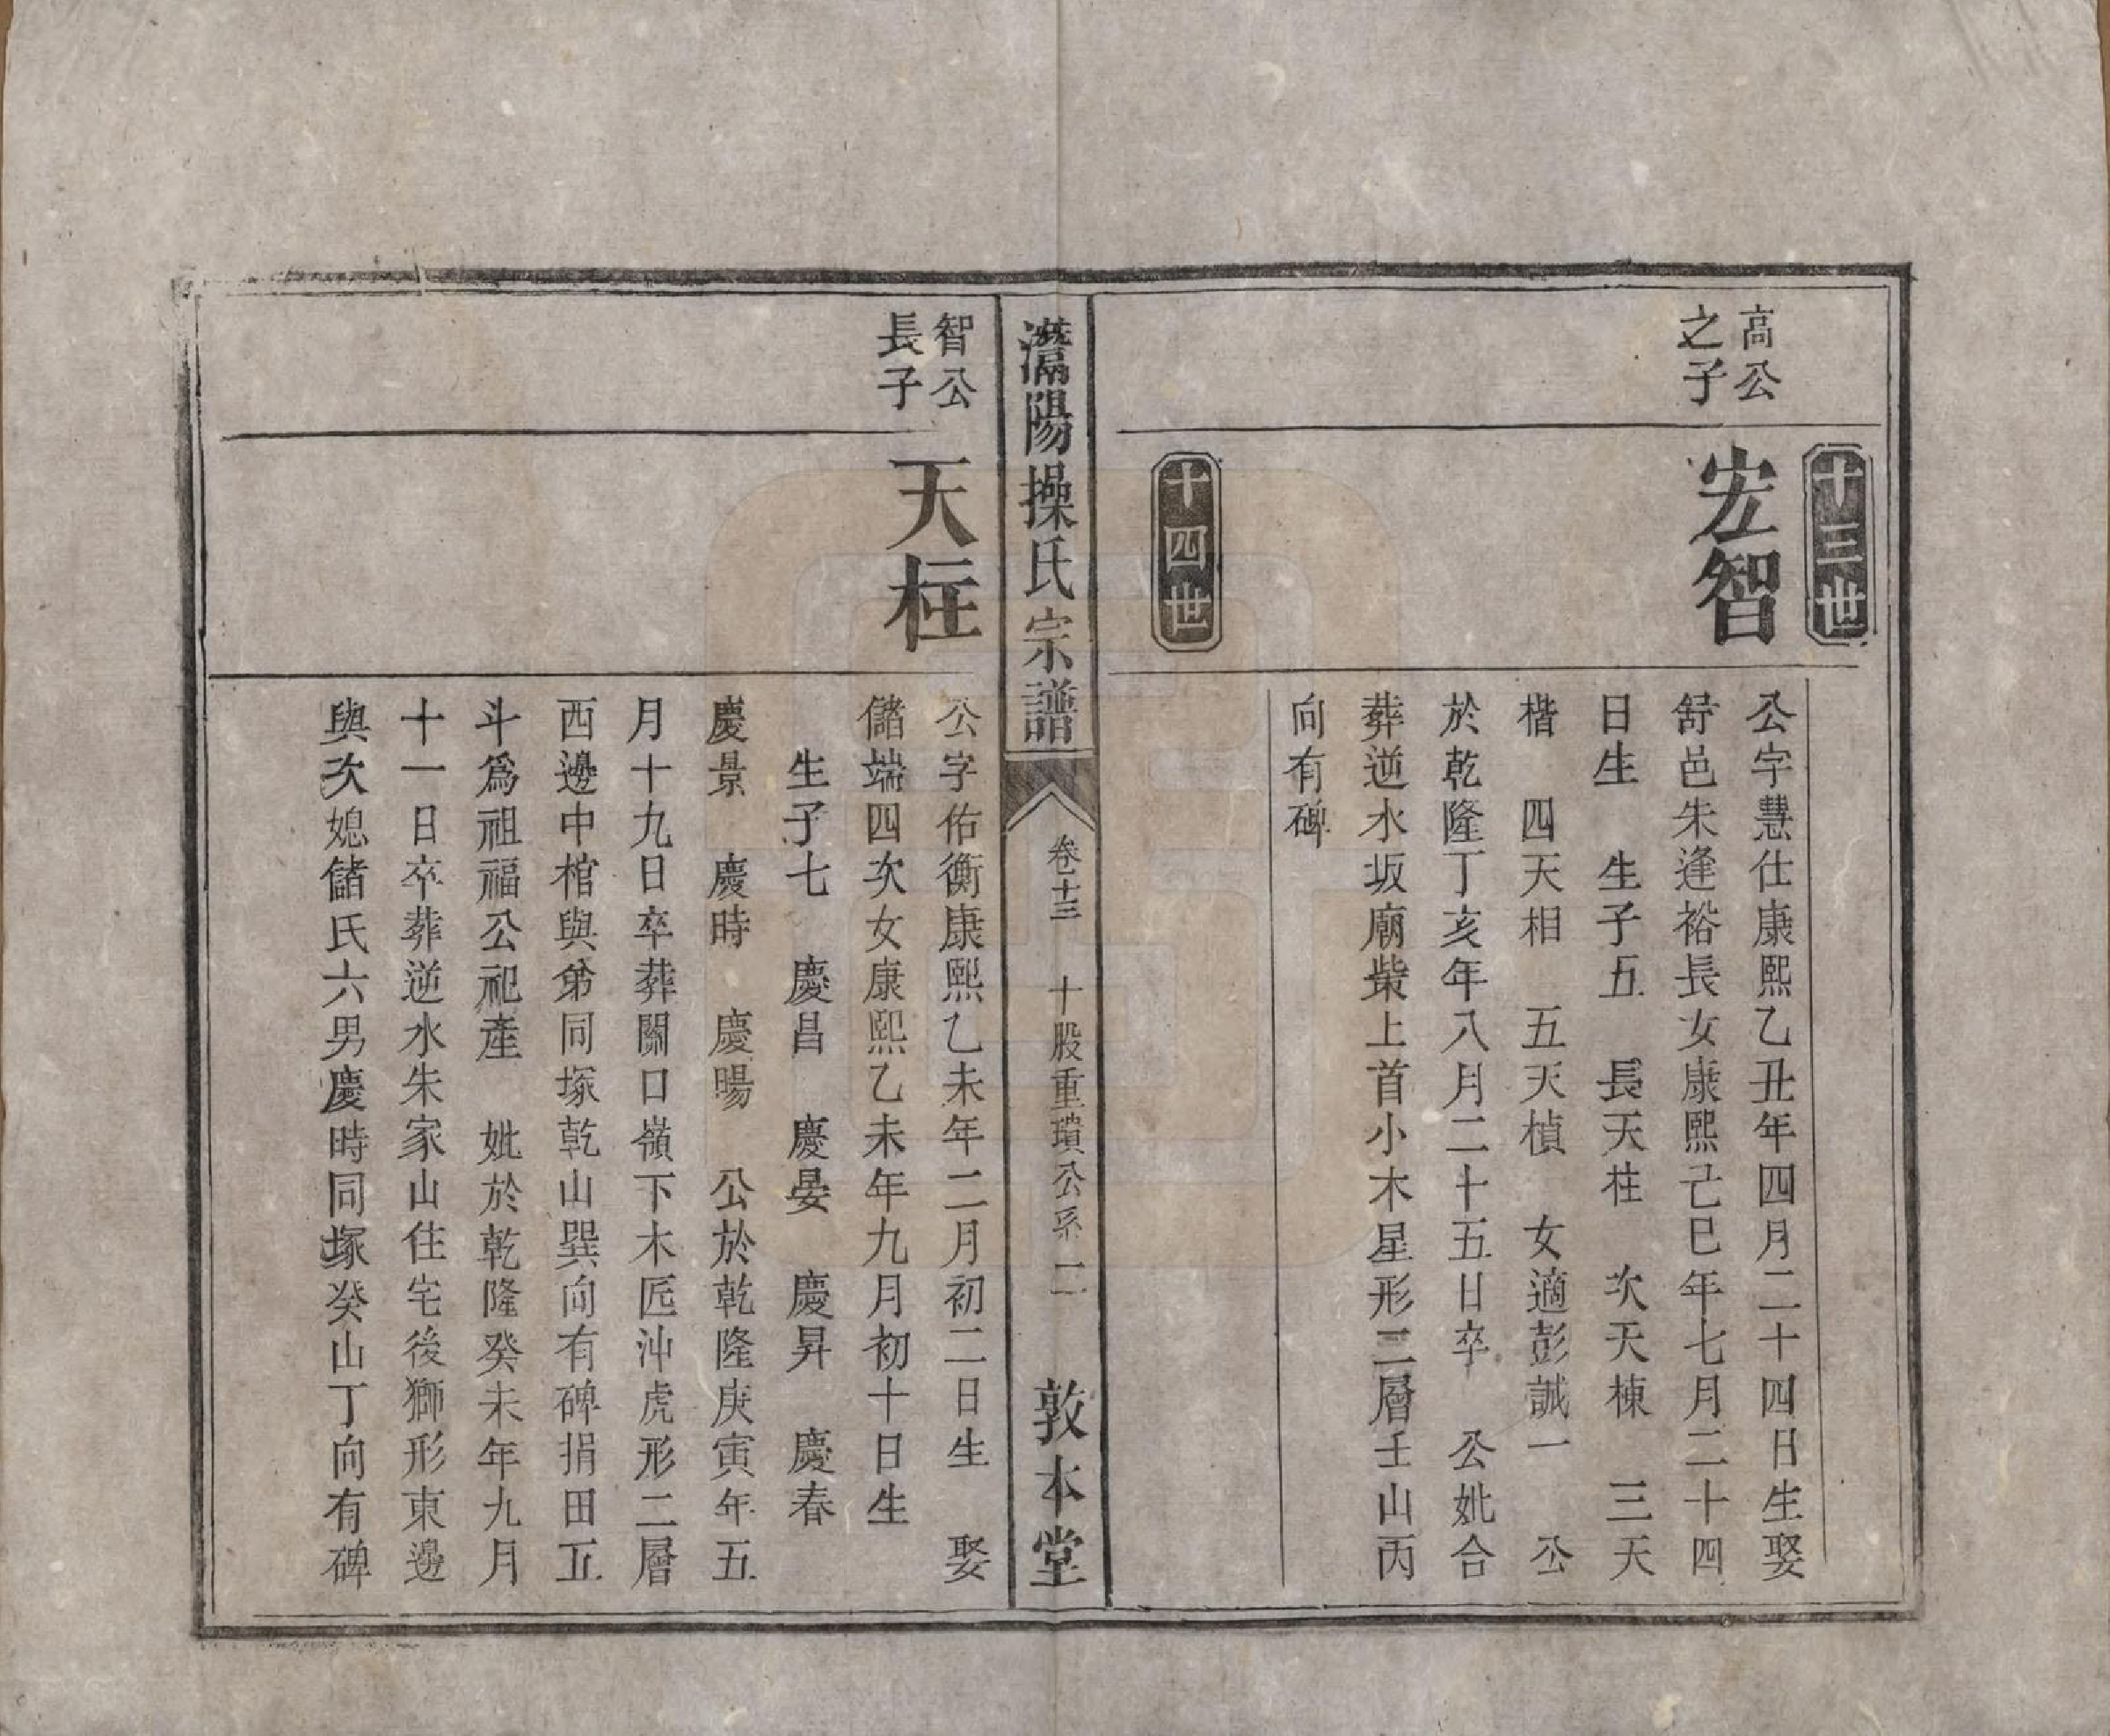 十三世
高公
之子
宏智
公字慧仕康熙乙丑年四月二十四日生娶
舒邑朱逢裕長女康熙己巳年七月二十四
日生　生子五　長天柱　次天棟　三天
楷　四天相　五天楨　女適彭誠一　公
於乾隆丁亥年八月二十五日卒　公妣合
葬逆水坂廟柴上首小木星形三層壬山丙
向有碑
十四世
灊陽操氏宗譜
卷十三　十股重璝公系　二
敦本堂
智公
長子
天柱
公字佑衡康熙乙未年二月初二日生　娶
儲端四次女康熙乙未年九月初十日生
生子七　慶昌　慶晏　慶昇　慶春
慶景　慶時　慶暘　公於乾隆庚寅年五
月十九日卒葬關口嶺下木匠沖虎形二層
西邊中棺與弟同塚乾山巽向有碑捐田五
斗爲祖福公祀產　妣於乾隆癸未年九月
十一日卒葬逆水朱家山住宅後獅形東邊
與次媳儲氏六男慶時同塚癸山丁向有碑